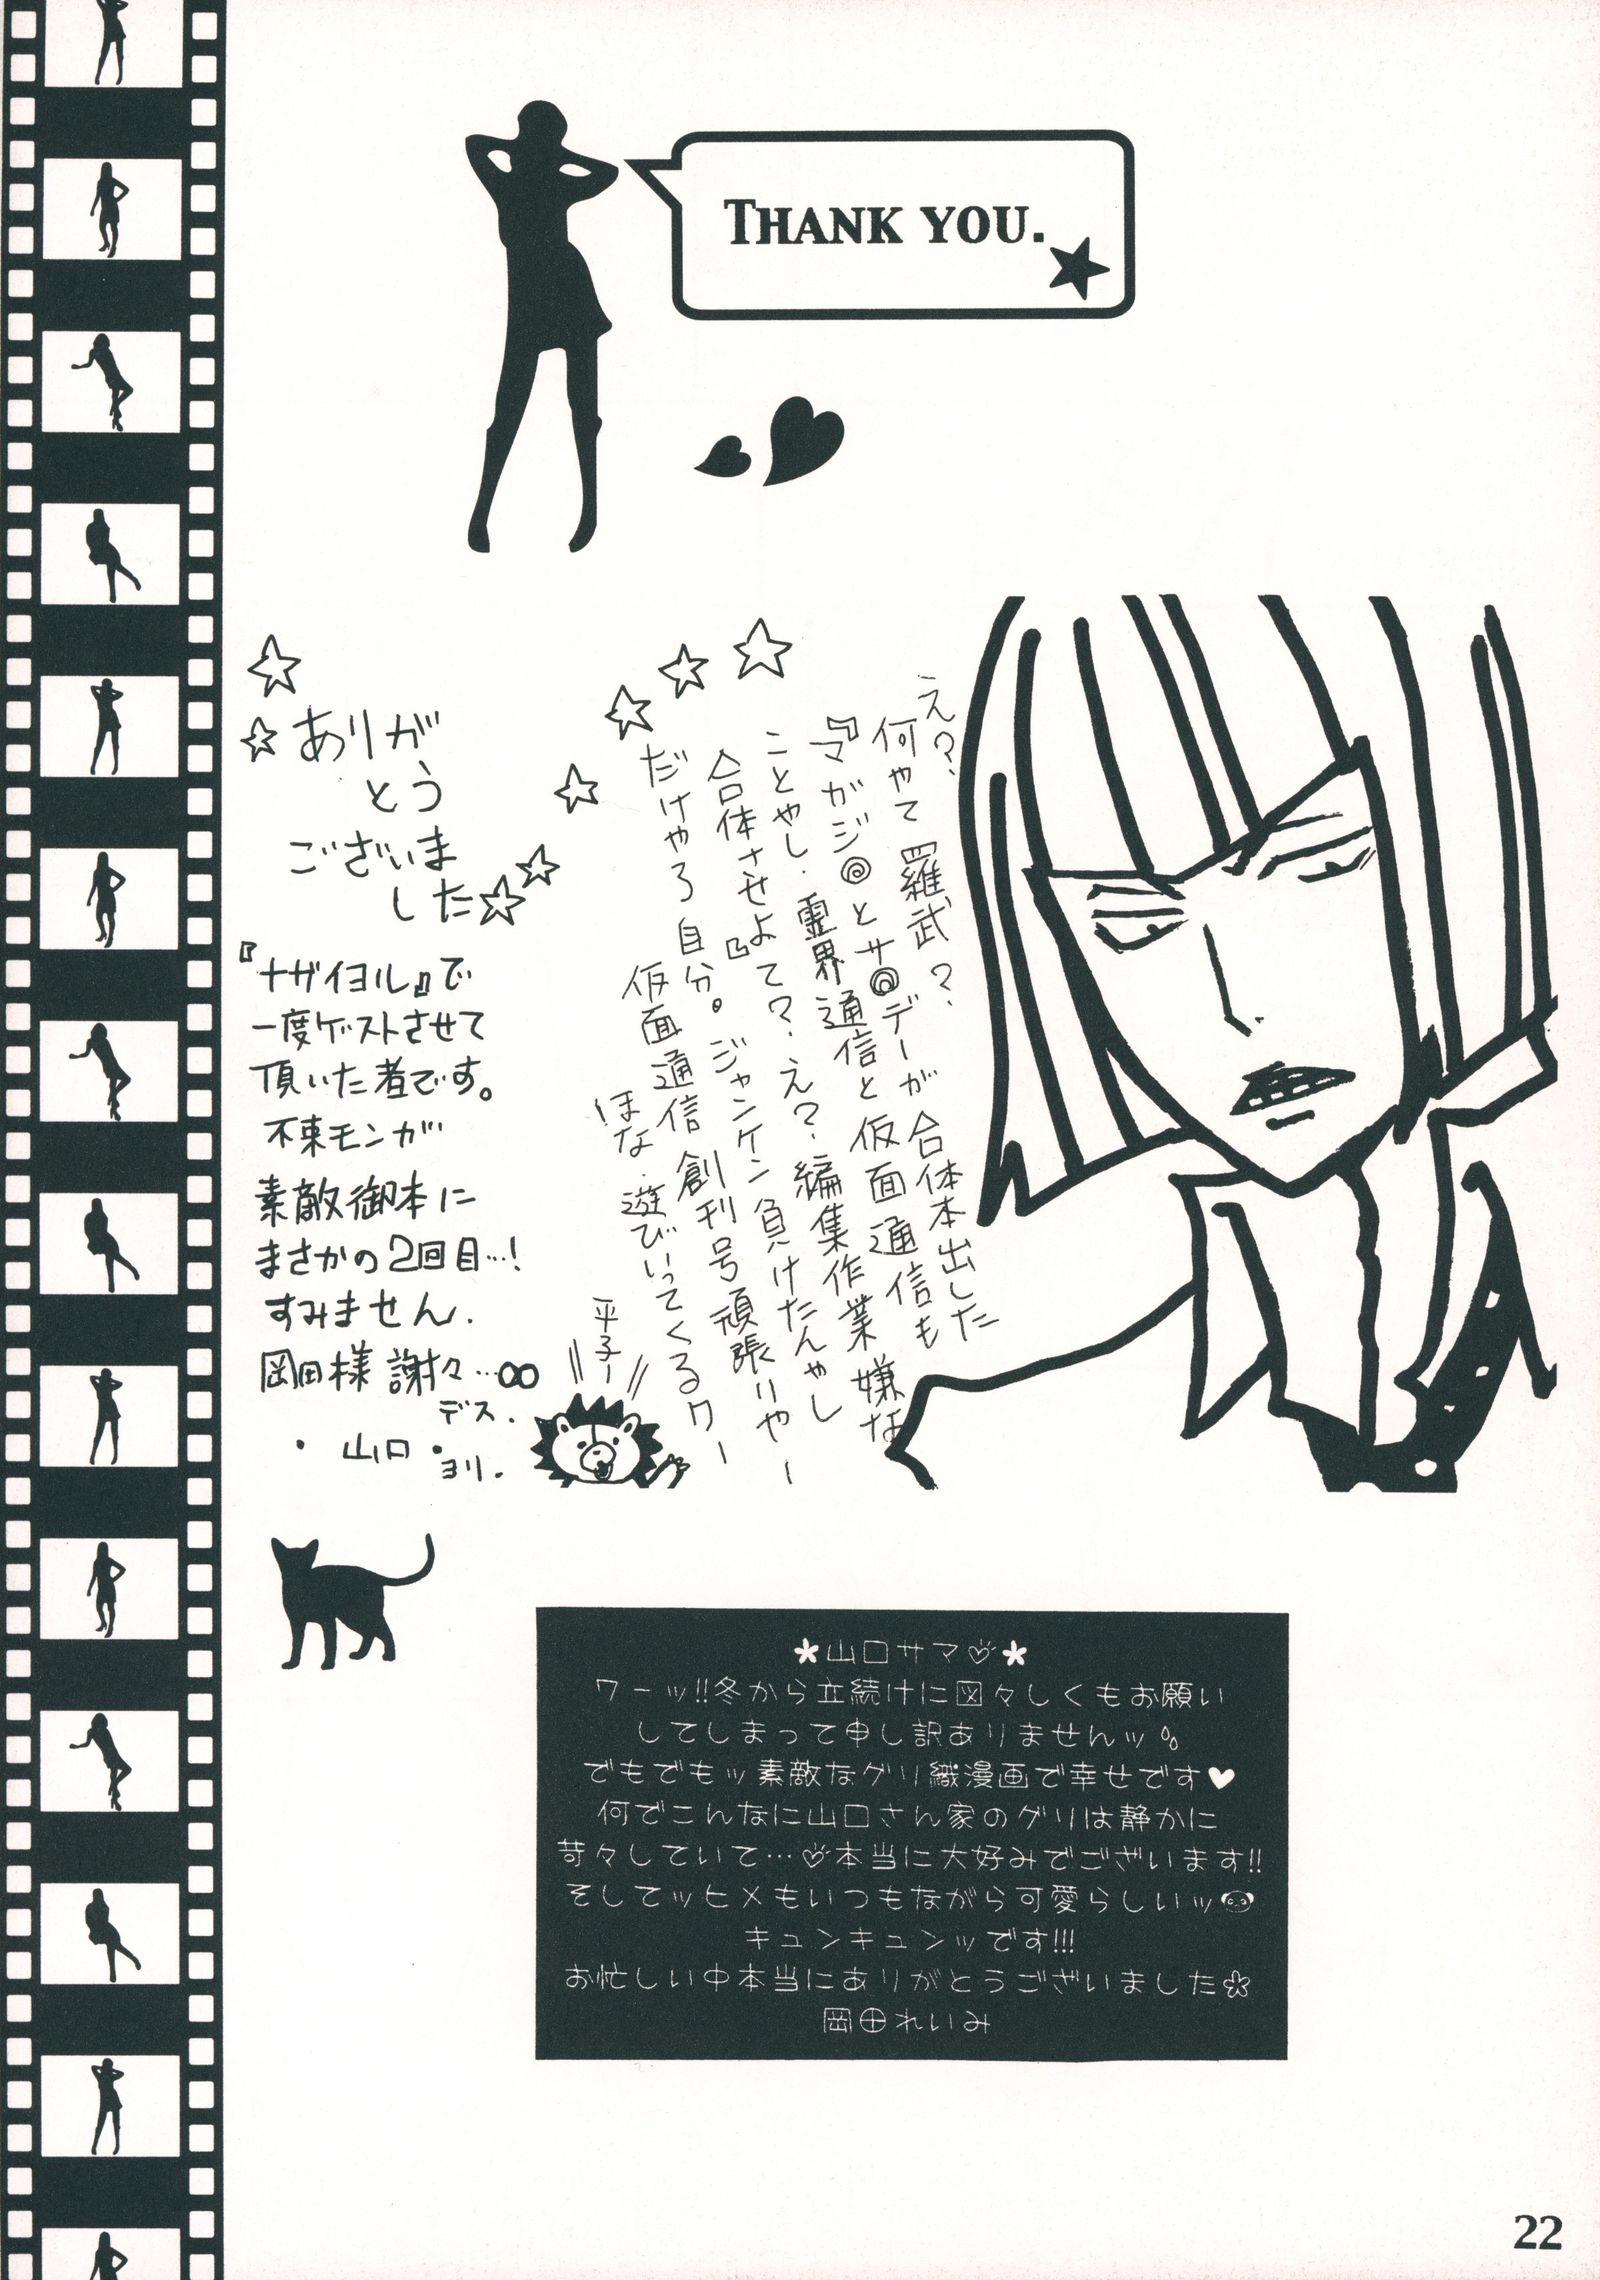 THANK YOU.
え?
何やて羅武?
『マガジ◎とサ◎デーが合体本出した
ことやし、霊界通信と仮面通信も
合体させよて?え?編集作業嫌な
だけやろ自分。ジャンケン負けたんやし
仮面通信創刊号頑張りやー
ほな、遊びいってくるワー
平子ー
ありが
とう
ございま
した
『ナザイヨル』で
一度ゲストさせて
頂いた者です。
不束モンが
素敵御本に
まさかの2回目…!
すみません.
岡田様 謝々…∞
デス.
・山口・ヨリ.
*山口サマ♡*
ワーッ!!冬から立続けに図々しくもお願い
してしまって申し訳ありませんッ
でもでもッ素敵なグリ織漫画で幸せです♥
何でこんなに山口さん家のグリは静かに
苛々していて…♡本当に大好みでございます!!
そしてッヒメもいつもながら可愛らしいッ
キュンキュンッです!!!
お忙しい中本当にありがとうございました
岡田れいみ
22